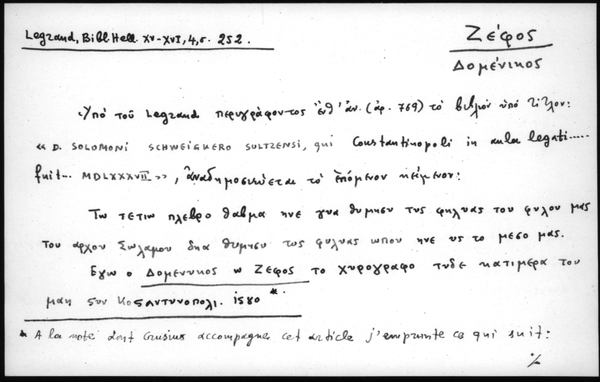 Legrand, Bibl Hell. XV-XVI, 4, σ. 252.
Ζέφος
Δομένικος
Ὑπό τοῦ Legrand περιγράφοντος ἔνθ' ἀν. (ἀρ. 769) τό βιβλίον ὑπό τίτλον:
« D. SOLOMONI SCHWEIGKERO SULTZENSI, qui Constantinopoli in aula legati.....
fuit... MDLXXXVII », ἀναδημοσιεύεται τό ἑπόμενον κείμενον:
Τω τετιω πλεβρο θαβμα ηνε γυα θυμησυ τυς φηλυας του φυλου μας
του αρχου Σωλαμου δηα θυμησυ τως φυλυας ωπου ηνε υς το μεσο μας.
Εγω ο Δομενυκος ω Ζεφος το χυρογραφο τυδε κατιμερα του
μαη συν Κοσαντυνοπολι. 1580 *.
* A la note dont Crusius accompagne cet article j'emprunte ce qui suit:
./.